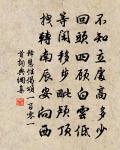 不知立處高多少
回頭四顧白雲低
等閑移步毗盧頂
轉南辰安向西
釋慧性偈頌一百零一
首詞典網集